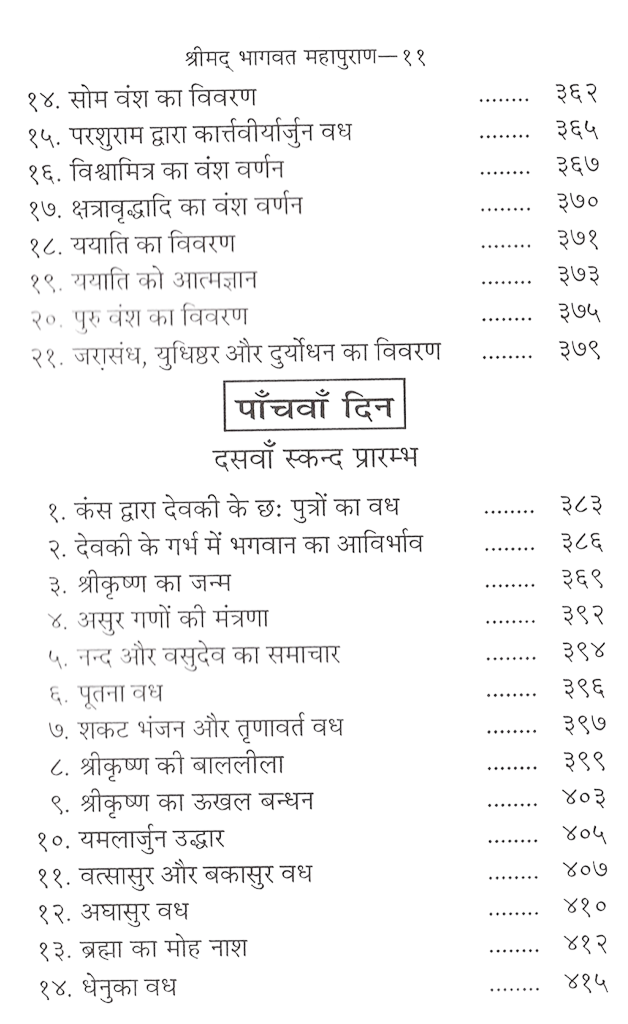 श्रीमद् भागवत महापुराण—११
१४. सोम वंश का विवरण ........ ३६२
१५. परशुराम द्वारा कार्त्तवीर्यार्जुन वध ........ ३६५
१६. विश्वामित्र का वंश वर्णन ........ ३६७
१७. क्षत्रावृद्धादि का वंश वर्णन ........ ३७०
१८. ययाति का विवरण ........ ३७१
१९. ययाति को आत्मज्ञान ........ ३७३
२०. पुरु वंश का विवरण ........ ३७५
२१. जरासंध, युधिष्ठर और दुर्योधन का विवरण ........ ३७९
पाँचवाँ दिन
दसवाँ स्कन्द प्रारम्भ
१. कंस द्वारा देवकी के छः पुत्रों का वध ........ ३८३
२. देवकी के गर्भ में भगवान का आविर्भाव ........ ३८६
३. श्रीकृष्ण का जन्म ........ ३६९
४. असुर गणों की मंत्रणा ........ ३९२
५. नन्द और वसुदेव का समाचार ........ ३९४
६. पूतना वध ........ ३९६
७. शकट भंजन और तृणावर्त वध ........ ३९७
८. श्रीकृष्ण की बाललीला ........ ३९९
९. श्रीकृष्ण का ऊखल बन्धन ........ ४०३
१०. यमलार्जुन उद्धार ........ ४०५
११. वत्सासुर और बकासुर वध ........ ४०७
१२. अघासुर वध ........ ४१०
१३. ब्रह्मा का मोह नाश ........ ४१२
१४. धेनुका वध ........ ४१५